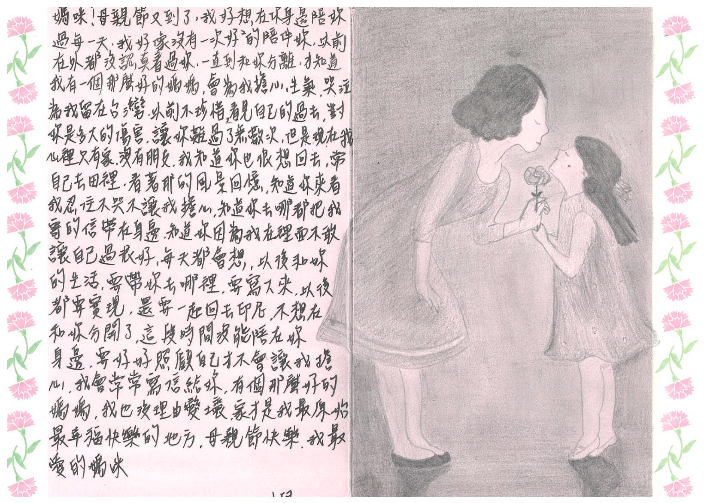 媽咪!母親節又到了,我好想在你身邊陪你
過每一天,我好像沒有一次好好的陪伴你,以前
在外都沒認真看過你,一直到和你分離,才知道
我有一個那麼好的媽媽,會為我擔心,生氣,哭泣
為我留在台灣,以前不珍惜,看見自己的過去,對
你是多大的傷害,讓你難過了無數次,但是現在我
心裡只有家,沒有朋友,我知道你也很想回去,常
自己去田裡,看著那的風景回憶,知道你來看
我忍住不哭不讓我擔心,知道你去哪都把我
寫的信帶在身邊,知道你因為我在裡面不敢
讓自己過很好,每天都會想,以後和你
的生活,要帶你去哪裡,要寫下來,以後
都要實現,還要一起回去印尼,不想在
和你分開了,這段時間沒能陪在你
身邊,要好好照顧自己才不會讓我擔
心,我會常常寫信給你,有個那麼好的
媽媽,我也沒理由變壞,家才是我最原始
最幸福快樂的地方,母親節快樂,我最
愛的媽咪